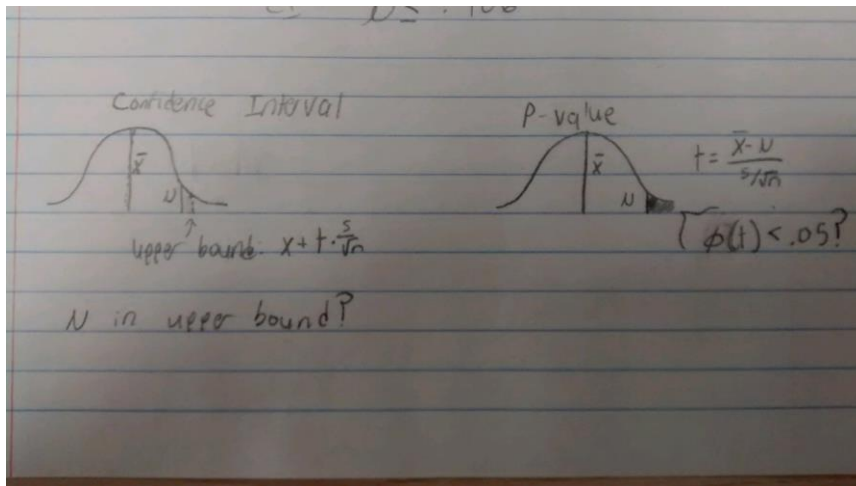 Confidence Interval
x̄
N
upper bound: x + t · s/√n
N in upper bound?
P-value
x̄
N
t = x̄ - N / s/√n
ϕ(t) < .05?